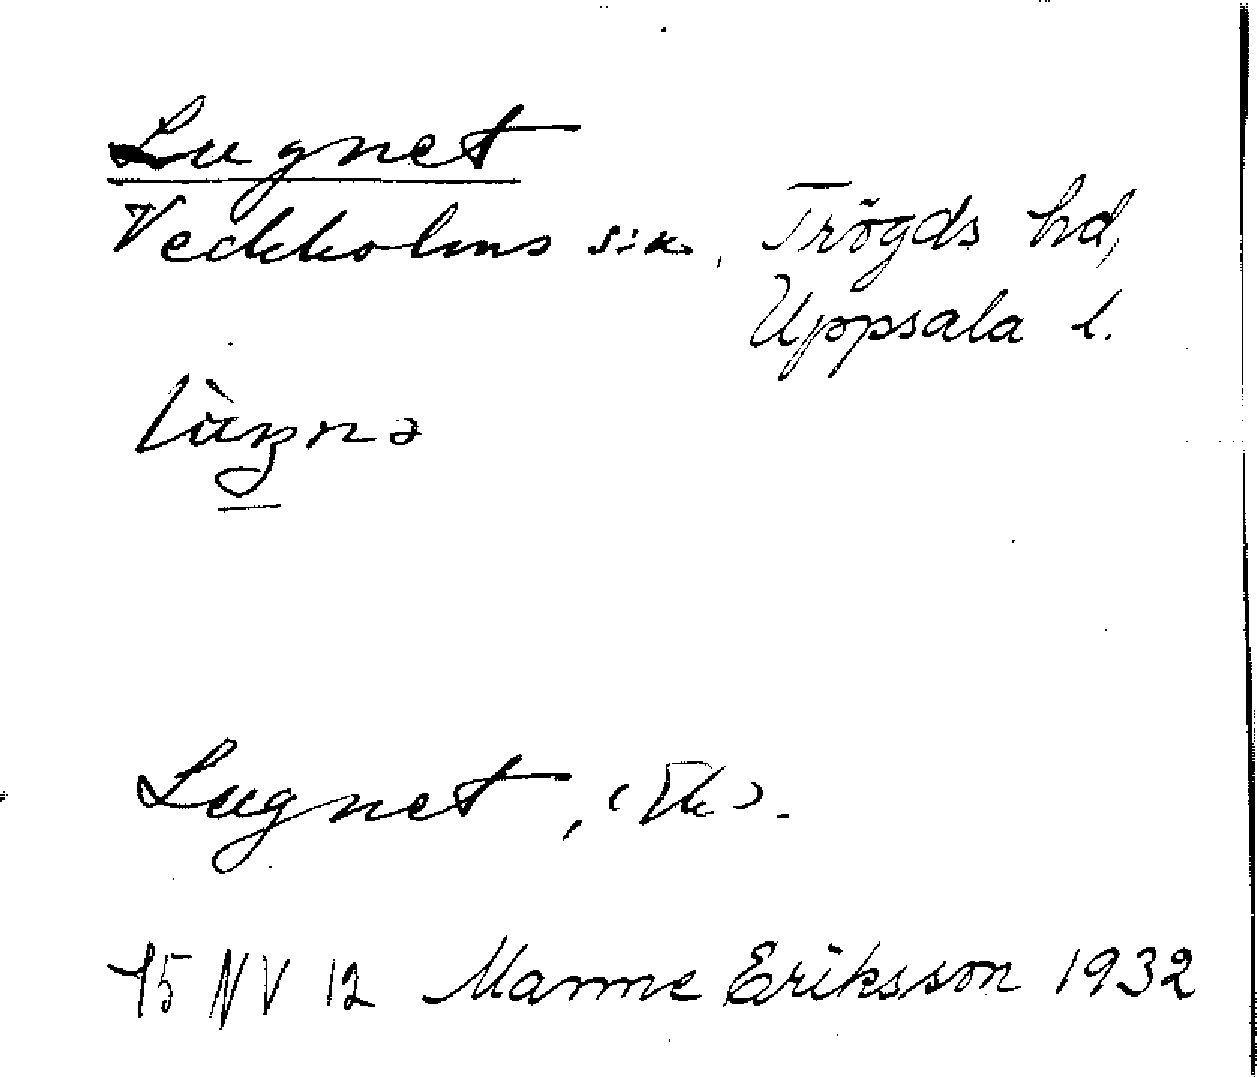 Lugnet
Veckholms s:n, Trögds hd,
Uppsala l.
Lugnet,
75 NV 12 Manne Eriksson 1932